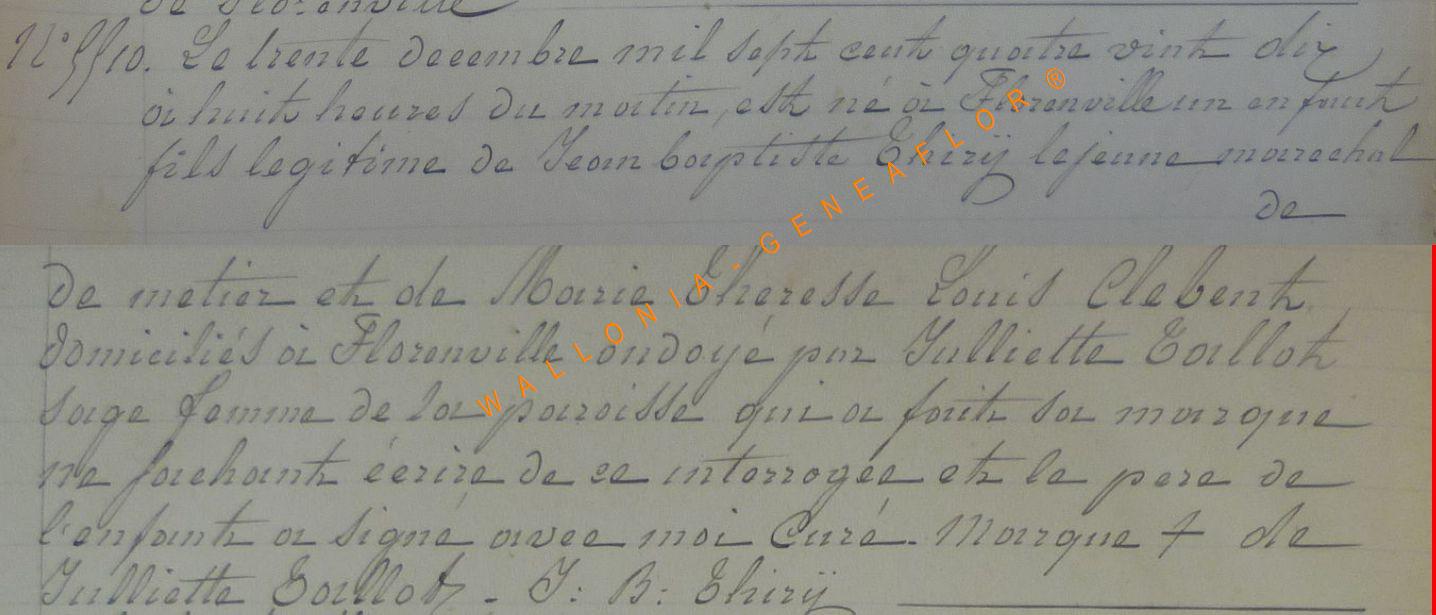 de Florenville
N° 5510. Le trente decembre mil sept cent quatre vint dix
à huit heures du matin, est né à Florenville un enfant
fils legitime de Jean baptiste Thirÿ lejeune marechal
de
de metier et de Marie Theresse Louis Clebent,
domiciliés à Florenville ondoyé par Julliette Taillot
sage femme de la paroisse qui a fait sa marque
ne sachant écrire de ce interrogée et le pere de
l'enfant a signé avec moi Curé. Marque + de
Julliette Taillot - J: B: Thirÿ
WALLONIA-GENEAFLOR ®